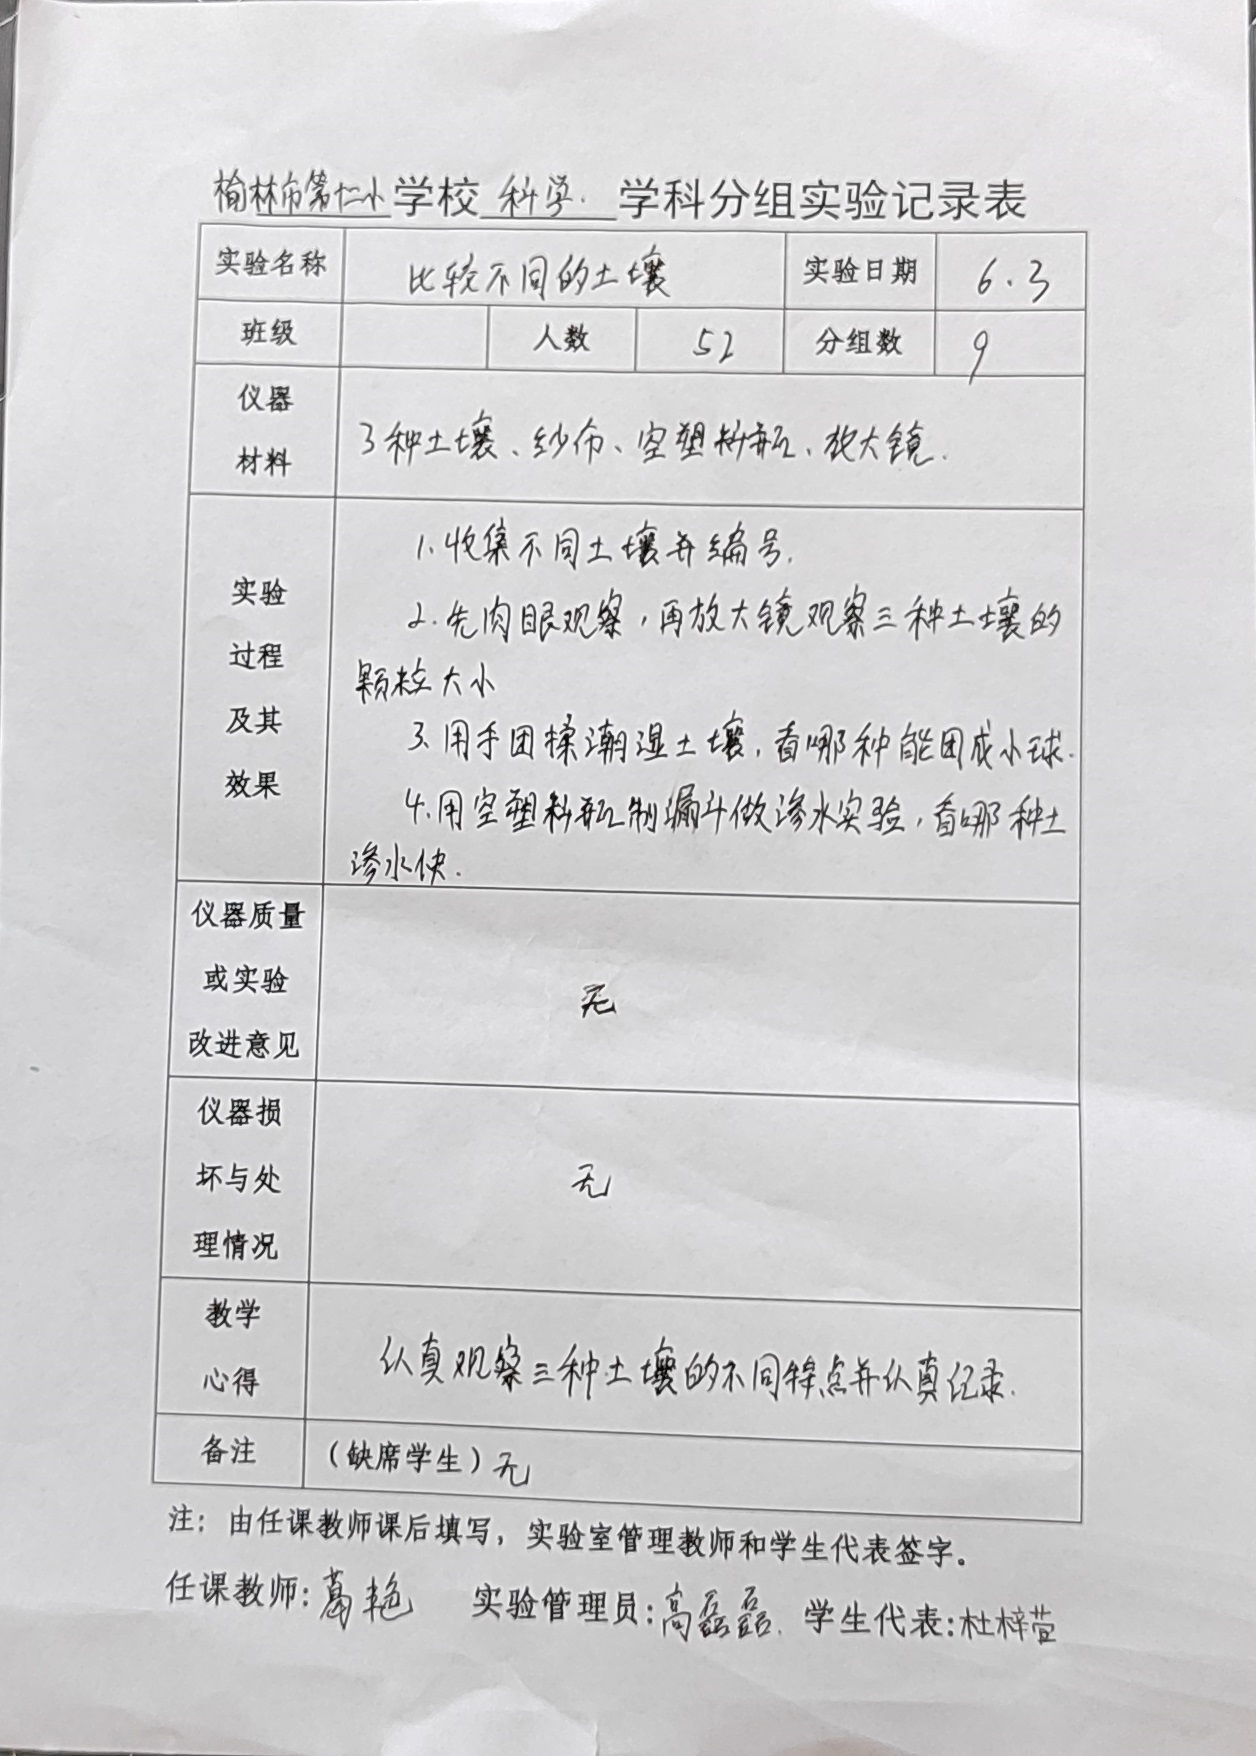 榆林市第十二小学校 科学. 学科分组实验记录表
实验名称 比较不同的土壤 实验日期 6.3
班级 人数 52 分组数 9
仪器
材料
3种土壤、纱布、空塑料瓶、放大镜.
实验
过程
及其
效果
1.收集不同土壤并编号.
2.先肉眼观察,再放大镜观察三种土壤的
颗粒大小
3.用手团揉潮湿土壤,看哪种能团成小球.
4.用空塑料瓶制漏斗做渗水实验,看哪种土
渗水快.
仪器质量
或实验
改进意见
无
仪器损
坏与处
理情况
无
教学
心得
认真观察三种土壤的不同特点并认真记录.
备注 (缺席学生)无
注：由任课教师课后填写，实验室管理教师和学生代表签字。
任课教师:葛艳 实验管理员:高磊磊. 学生代表:杜梓萱